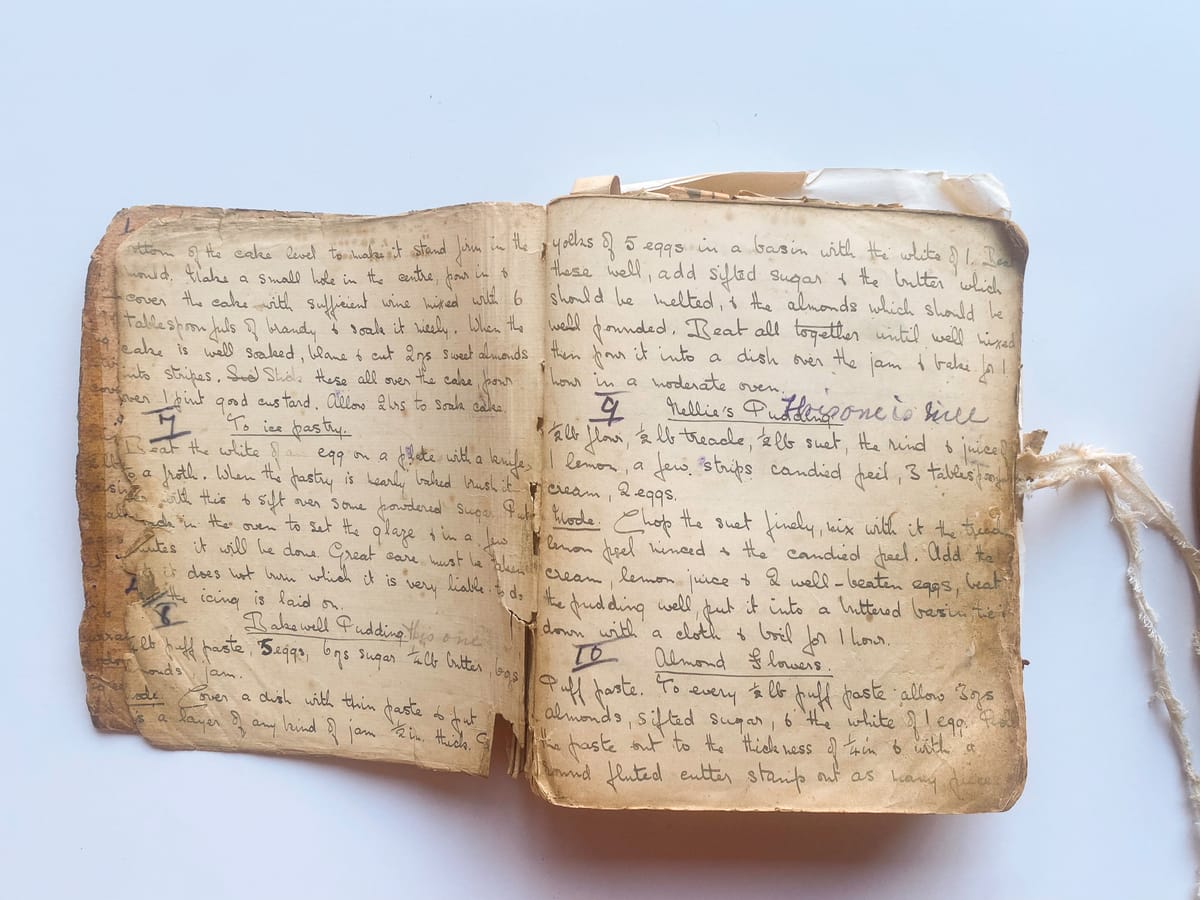 ottom of the cake level to make it stand firm in the
mould. Make a small hole in the centre, pour in &
cover the cake with sufficient wine mixed with 6
tablespoonfuls of brandy & soak it nicely. When the
cake is well soaked, blane & cut 2ozs sweet almonds
into stripes. Stick these all over the cake, pour
over 1 pint good custard. Allow 2hrs to soak cake
7
To ice pastry.
Beat the white of an egg on a plate with a knife,
to a froth. When the pastry is nearly baked brush it
with this & sift over some powdered sugar. Put
back in the oven to set the glaze & in a few
minutes it will be done. Great care must be taken
it does not burn which it is very liable to do
the icing is laid on.
8
Bakewell Pudding this one
¼lb puff paste, 5 eggs, 6ozs sugar ¼lb butter, 1oz
monds jam.
ode. Cover a dish with thin paste & put
is a layer of any kind of jam ½in. thick.
yolks of 5 eggs in a basin with the white of 1. Beat
these well, add sifted sugar & the butter which
should be melted, & the almonds which should be
well pounded. Beat all together until well mixed
then pour it into a dish over the jam & bake for 1
hour in a moderate oven.
9
Nellie's Pudding This one is nice
½lb flour, ½lb treacle, ½lb suet, the rind & juice of
1 lemon, a few strips candied peel, 3 tablespoonfuls
cream, 2 eggs.
Mode. Chop the suet finely, mix with it the treacle
lemon peel minced & the candied peel. Add the
cream, lemon juice & 2 well-beaten eggs, beat
the pudding well, put it into a buttered basin tie it
down with a cloth & boil for 1 hour.
10
Almond Flowers.
Puff paste. To every ½lb puff paste allow 3ozs
almonds, sifted sugar, & the white of 1 egg. Roll
the paste out to the thickness of ¼in & with a
round fluted cutter stamp out as many pieces